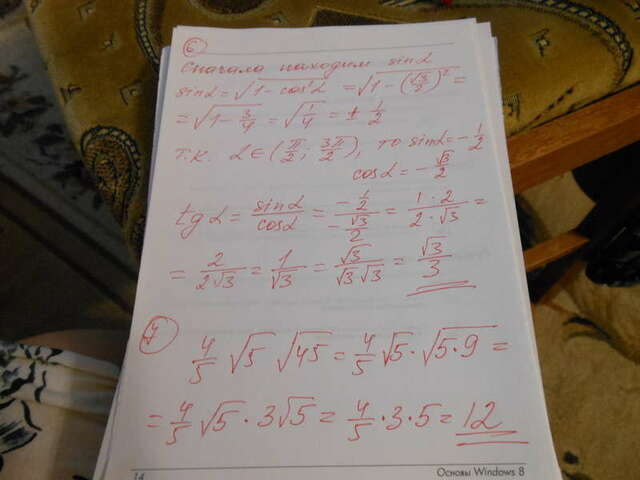 6
Сначала находим sinα
sinα = √1 - cos²α = √1 - (√3/2)² =
= √1 - 3/4 = √1/4 = ± 1/2
Т.К. α ∈ (π/2; 3π/2), то sinα = - 1/2
cosα = - √3/2
tgα = sinα/cosα = (- 1/2)/(- √3/2) = 1·2/2·√3 =
= 2/2√3 = 1/√3 = √3/√3√3 = √3/3
7
4/5 √5 √45 = 4/5 √5 · √5·9 =
= 4/5 √5 · 3√5 = 4/5 · 3 · 5 = 12
14 Основы Windows 8